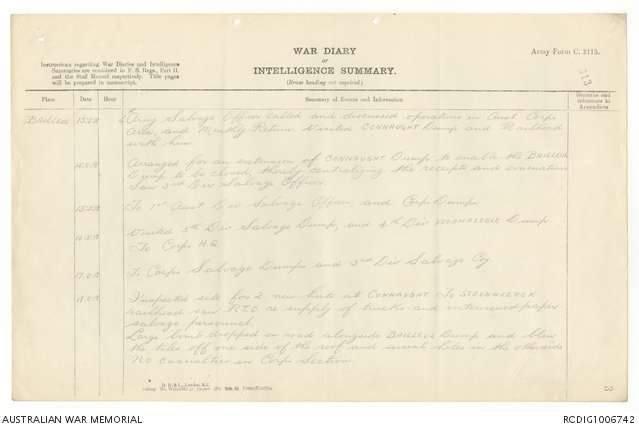 WAR DIARY
OR
INTELLIGENCE SUMMARY.
(Erase heading not required.)
Army Form C. 2118.
Instructions regarding War Diaries and Intelligence
Summaries are contained in F. S. Regs., Part II.
and the Staff Manual respectively. Title pages
will be prepared in manuscript.
Place Date Hour Summary of Events and Information Remarks and references to Appendices
Army Salvage Officer called and discussed operations in Aust Corps
Area, and Monthly Return. Visited CONNAUGHT Dump and Railhead
with him
Arranged for an extension of CONNAUGHT Dump to enable the BAILLEUL
Dump to be closed, thereby centralizing the receipts and evacuation
Saw 3rd Div Salvage Officer.
To 1st Aust Div Salvage Officer and Corps Dumps
Visited 5th Div Salvage Dump, and 4th Div Dump
To Corps H.Q
To Corps Salvage Dumps and 3rd Div Salvage Coy
Inspected site for 2 new huts at CONNAUGHT. To STEENWERCK
railhead saw R.T.O re supply of trucks and interviewed paper
salvage personnel.
Large bomb dropped on road alongside BAILLEUL Dump and blew
the tiles off one side of the roof and several holes in the other side
No casualties in Corps Section.
AUSTRALIAN WAR MEMORIAL
RCDIG1006742